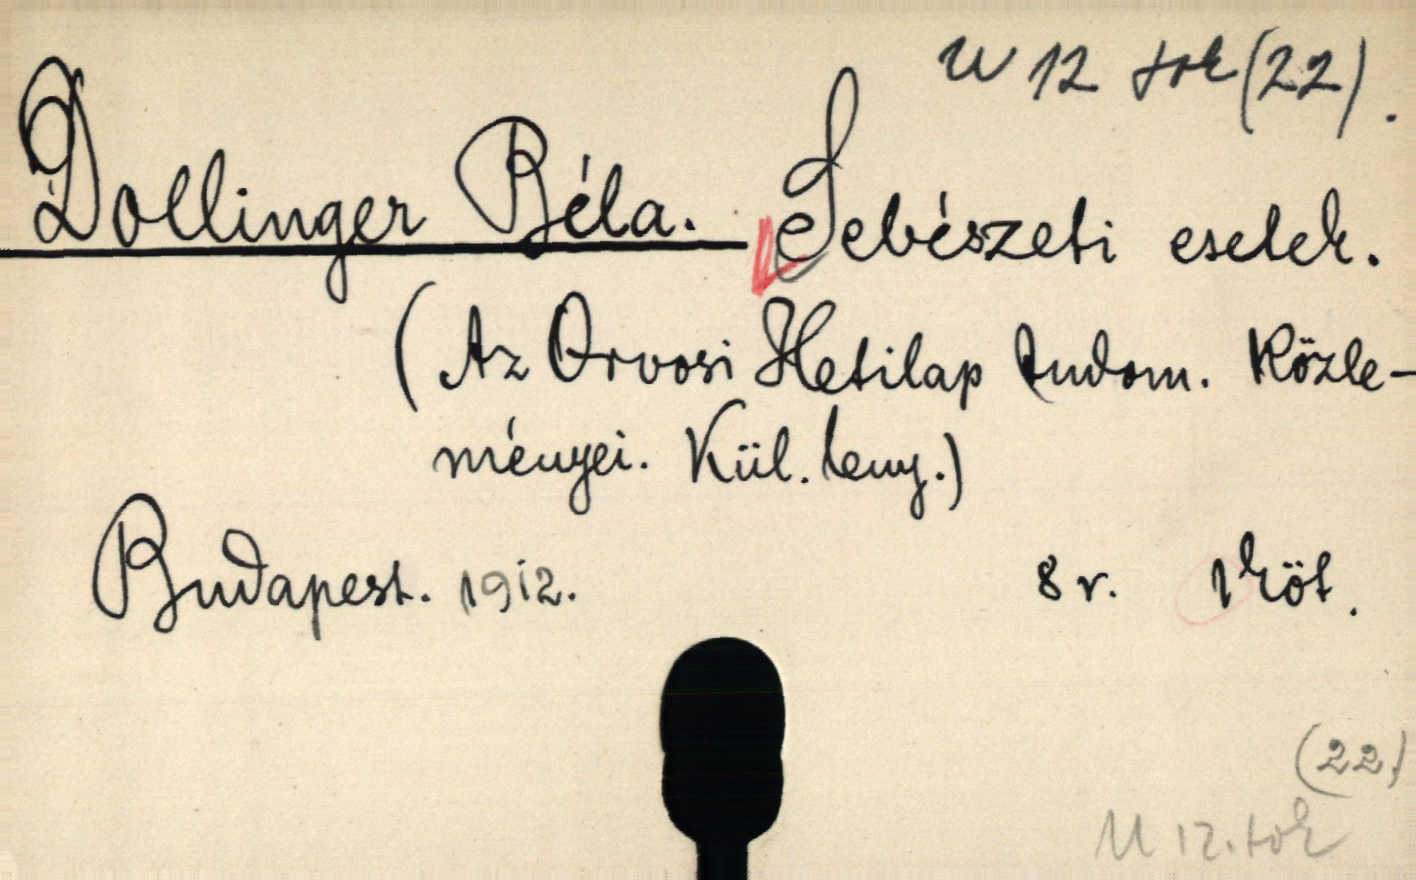 W 12 tok (22).
Dollinger Béla. Sebészeti esetek.
(Az Orvosi Hetilap tudom. Közle-
ményei. Kül. leny.)
Budapest. 1912. 8 r. 1 köt.
(22)
U 12. tok